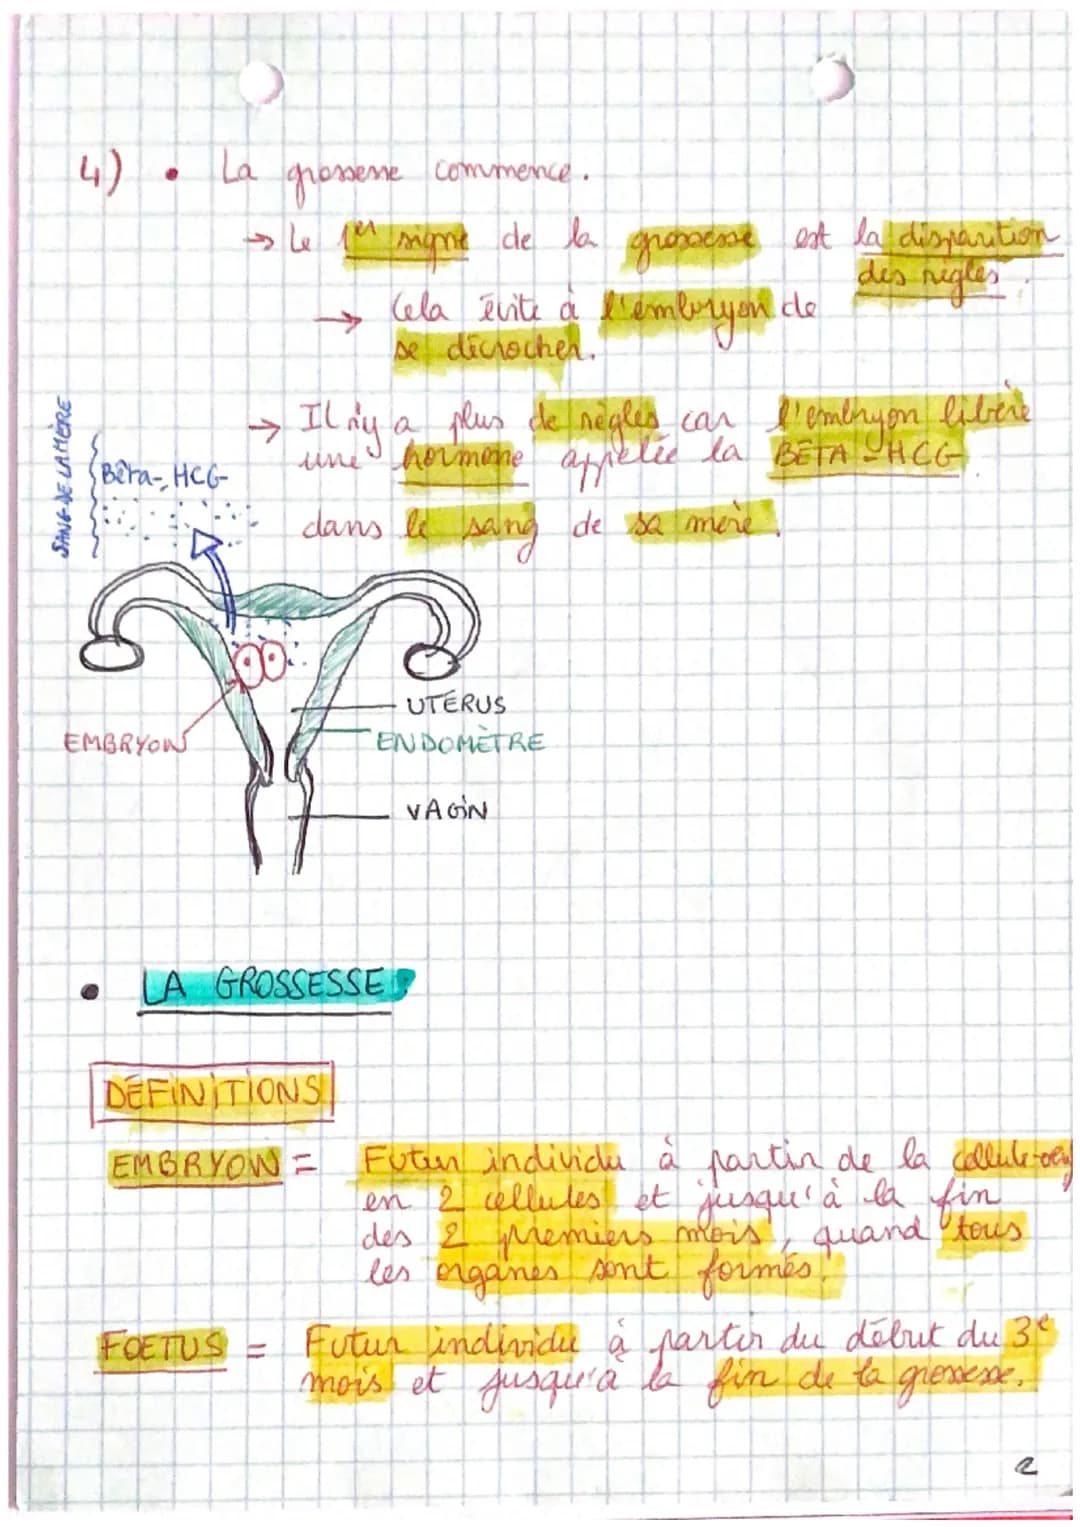 4) • La grossesse commence.
→ Le 1er signe de la grossesse est la disparition
des règles.
→ Cela évite à l'embryon de
se décrocher.
→ Il n'y a plus de règles car l'embryon libère
une hormone appelée la BÊTA-HCG
dans le sang de sa mère.
SANG DE LA MÈRE
Bêta-HCG
EMBRYON
UTÉRUS
ENDOMÈTRE
VAGIN
• LA GROSSESSE:
DÉFINITIONS
EMBRYON = Futur individu à partir de la cellule-oeuf
en 2 cellules et jusqu'à la fin
des 2 premiers mois, quand tous
les organes sont formés.
FOETUS = Futur individu à partir du début du 3e
mois et jusqu'à la fin de la grossesse.
2